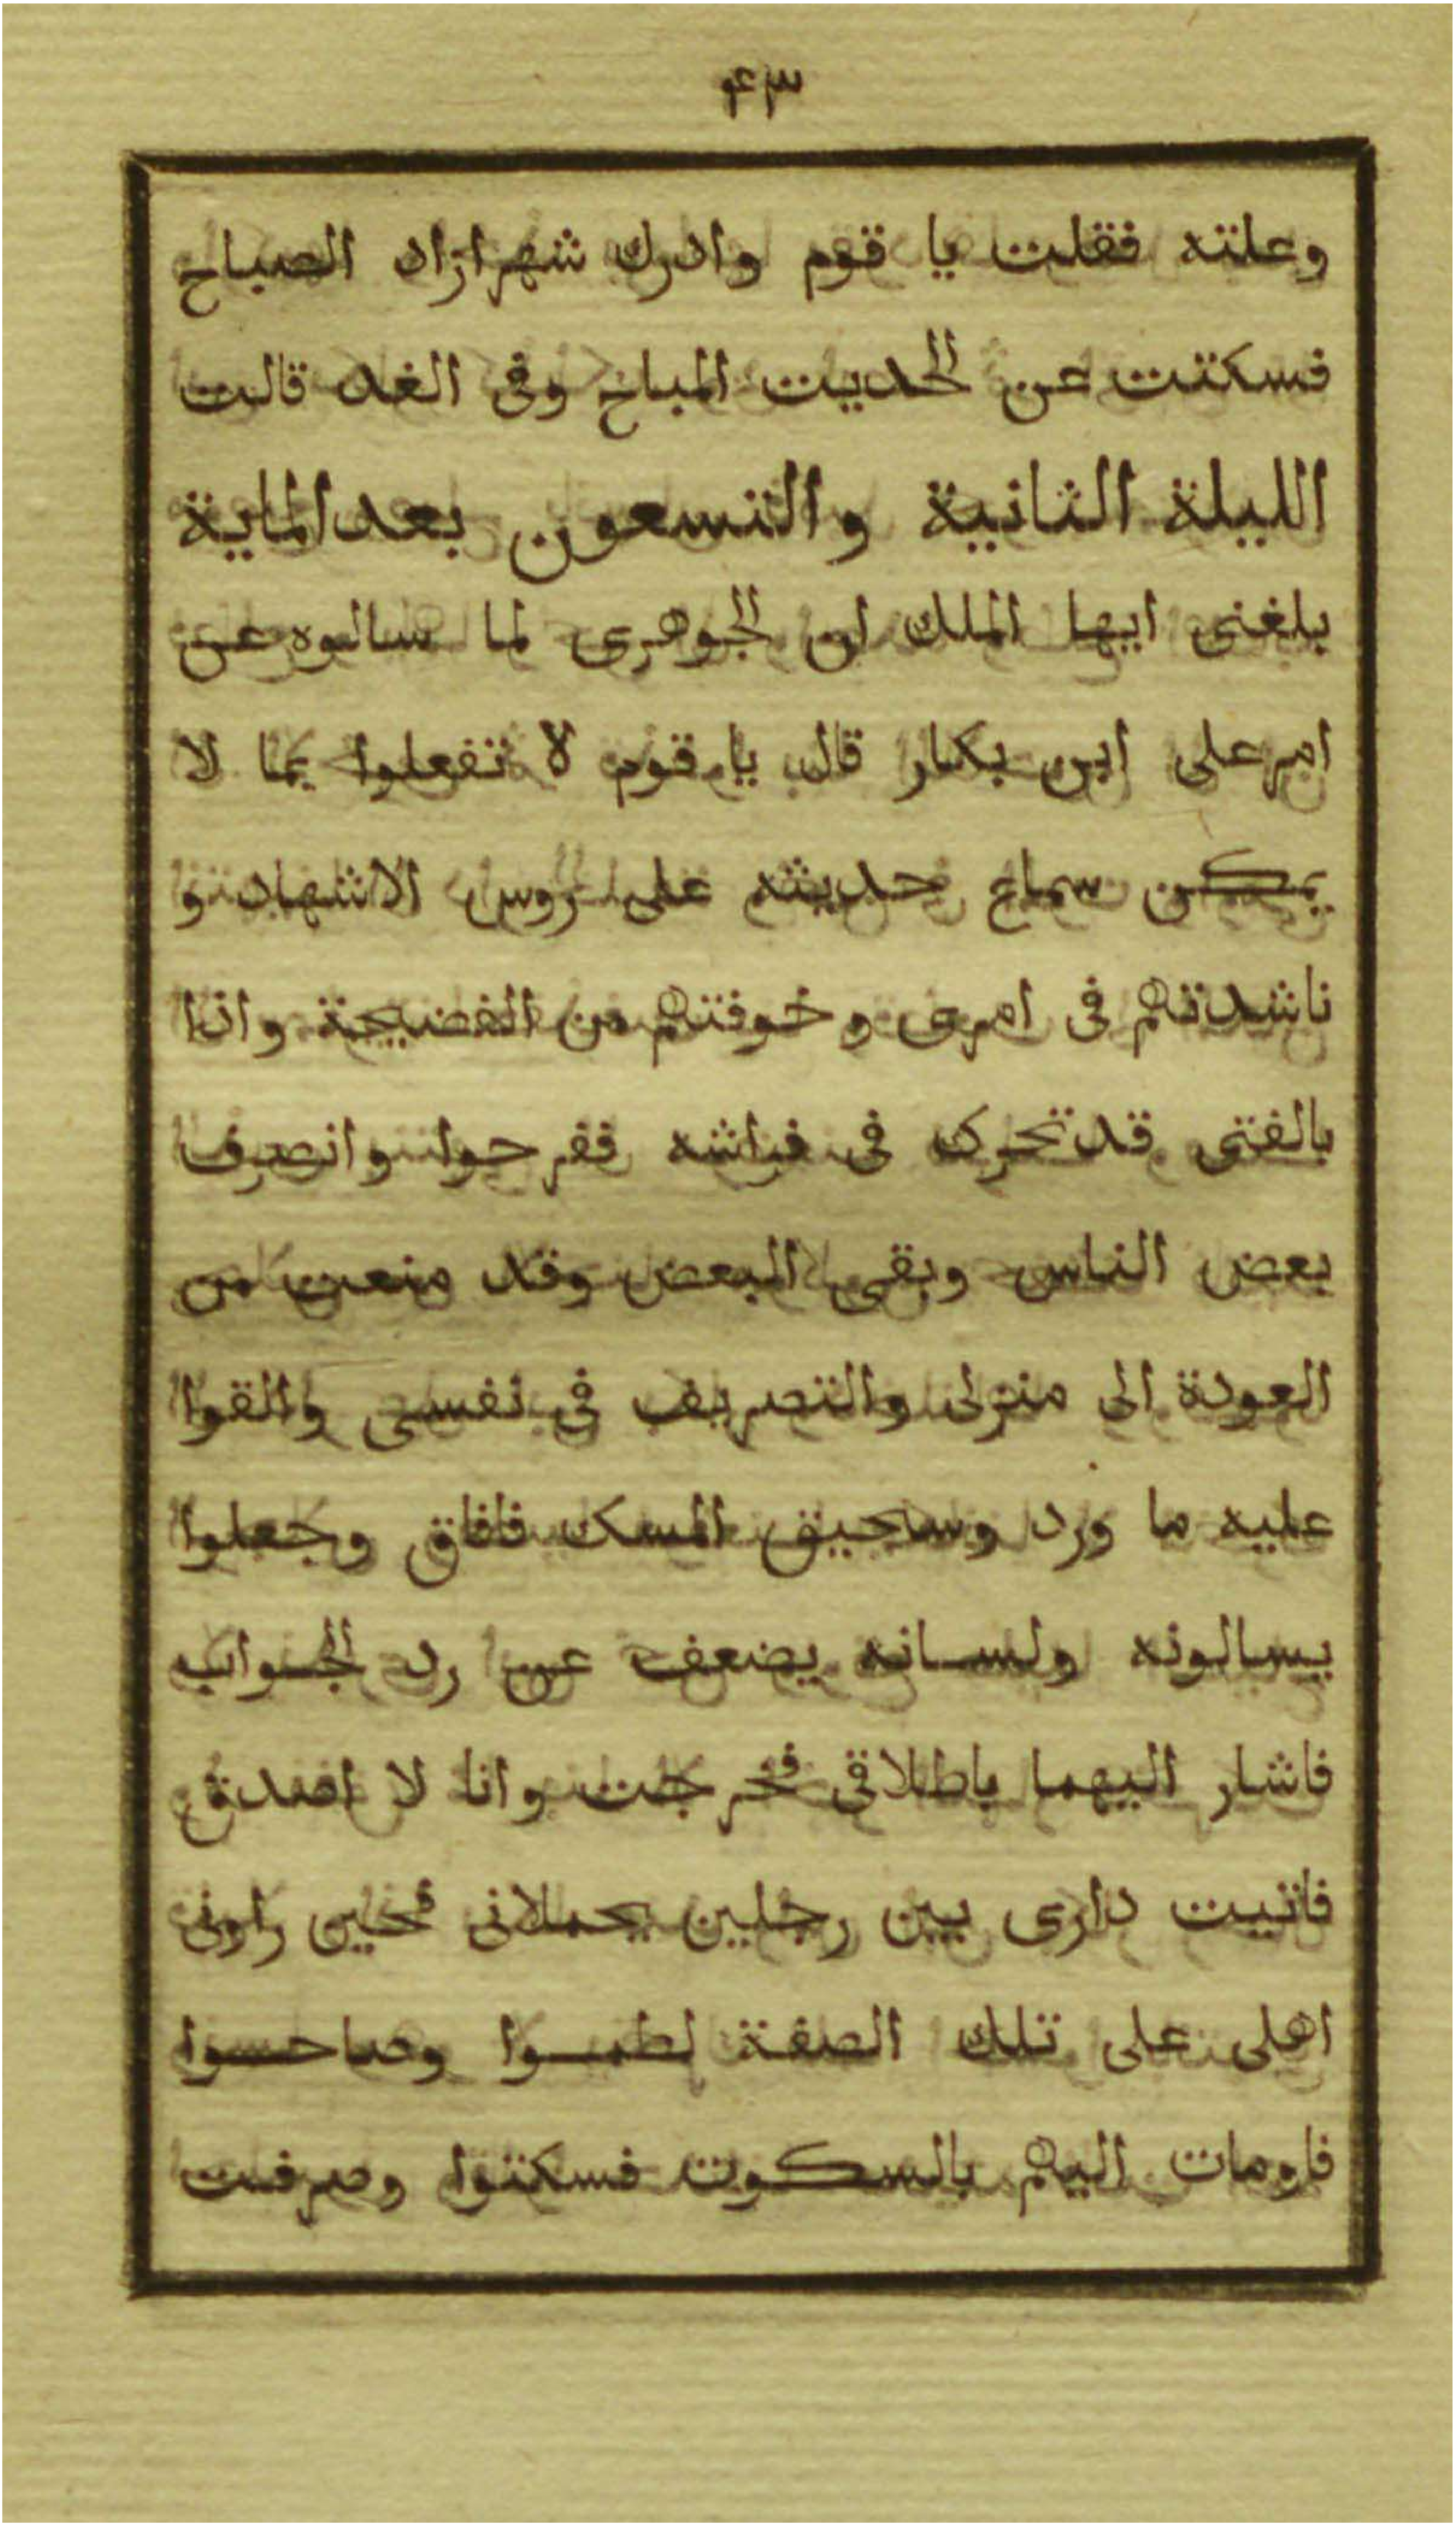 ۴۳
وعلته فقلت يا قوم وادرك شهرازاد الصباح
فسكتت عن الحديت المباح وفى الغد قالت
الليلة الثانية والتسعون بعد الماية
بلغنى ايها الملك ان الجوهرى لما سالوه عن
امر على ابن بكار قال يا قوم لا تفعلوا بما لا
يمكن سماع حديثه على روس الاشهاد و
ناشدتهم فى امرى وخوفتهم من الفضيحة واذا
بالفتى قد تحرك فى فراشه ففرحوا وانصرف
بعض الناس وبقى البعض وقد منعت من
العودة الى منزلى والتصريف في نفسى والقوا
عليه ما ورد وسحيق المسك فافاق وجعلوا
يسالونه ولسانه يضعف عن رد الجواب
فاشار اليهما باطلاقي فخرجت وانا لا اصدق
فاتيت دارى بين رجلين يحملانى فحين راونى
اهلى على تلك الصفة لطمـوا وصاحـوا
فاومات اليهم بالسكوت فسكتوا وصرفت